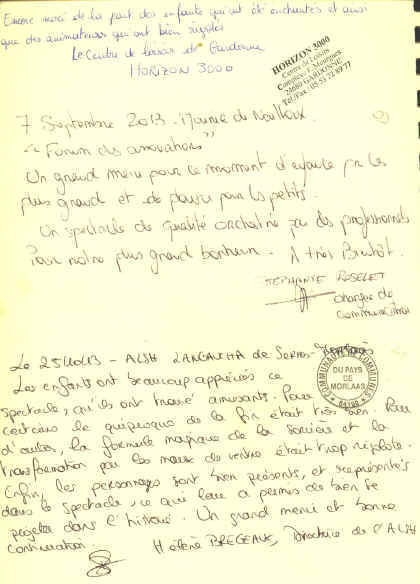 Encore merci de la part des enfants qui ont été enchantés et aussi
que des animatrices qui ont bien rigolés
Le Centre de loisirs de Gardonne
HORIZON 3000
HORIZON 3000
Centre de Loisirs
24680 GARDONNE
Tél/Fax : 05 53 22 89 77
7 Septembre 2013. Mairie de Nailloux.
"Forum des associations"
Un grand merci pour ce moment d'enfance pr les
plus grand et de plaisir pour les petits.
Un spectacle de qualité orchestré par des professionnels
Pour notre plus grand bonheur. A très Bientôt.
STEPHANIE ROSELET
chargée de
communication
COMMUNAUTÉ DE COMMUNES
DU PAYS
DE
MORLAAS
64160
Le 25/10/13 - ALSH LANGAUCHA de Serres-Morlaàs
Les enfants ont beaucoup appréciés ce
spectacle, qu'ils ont trouvé amusants. Pour
certains le quiproquo de la fin était très bien. Pour
d'autres, la formule magique de la sorcière et la
transformation par les maux de ventre était trop rigolote.
Enfin, les personnages sont bien présents, et représentés
dans le spectacle, ce qui leur a permis de bien se
projeter dans l'histoire. Un grand merci et bonne
continuation
Hélène BREGEAUX, Directrice de l'ALSH